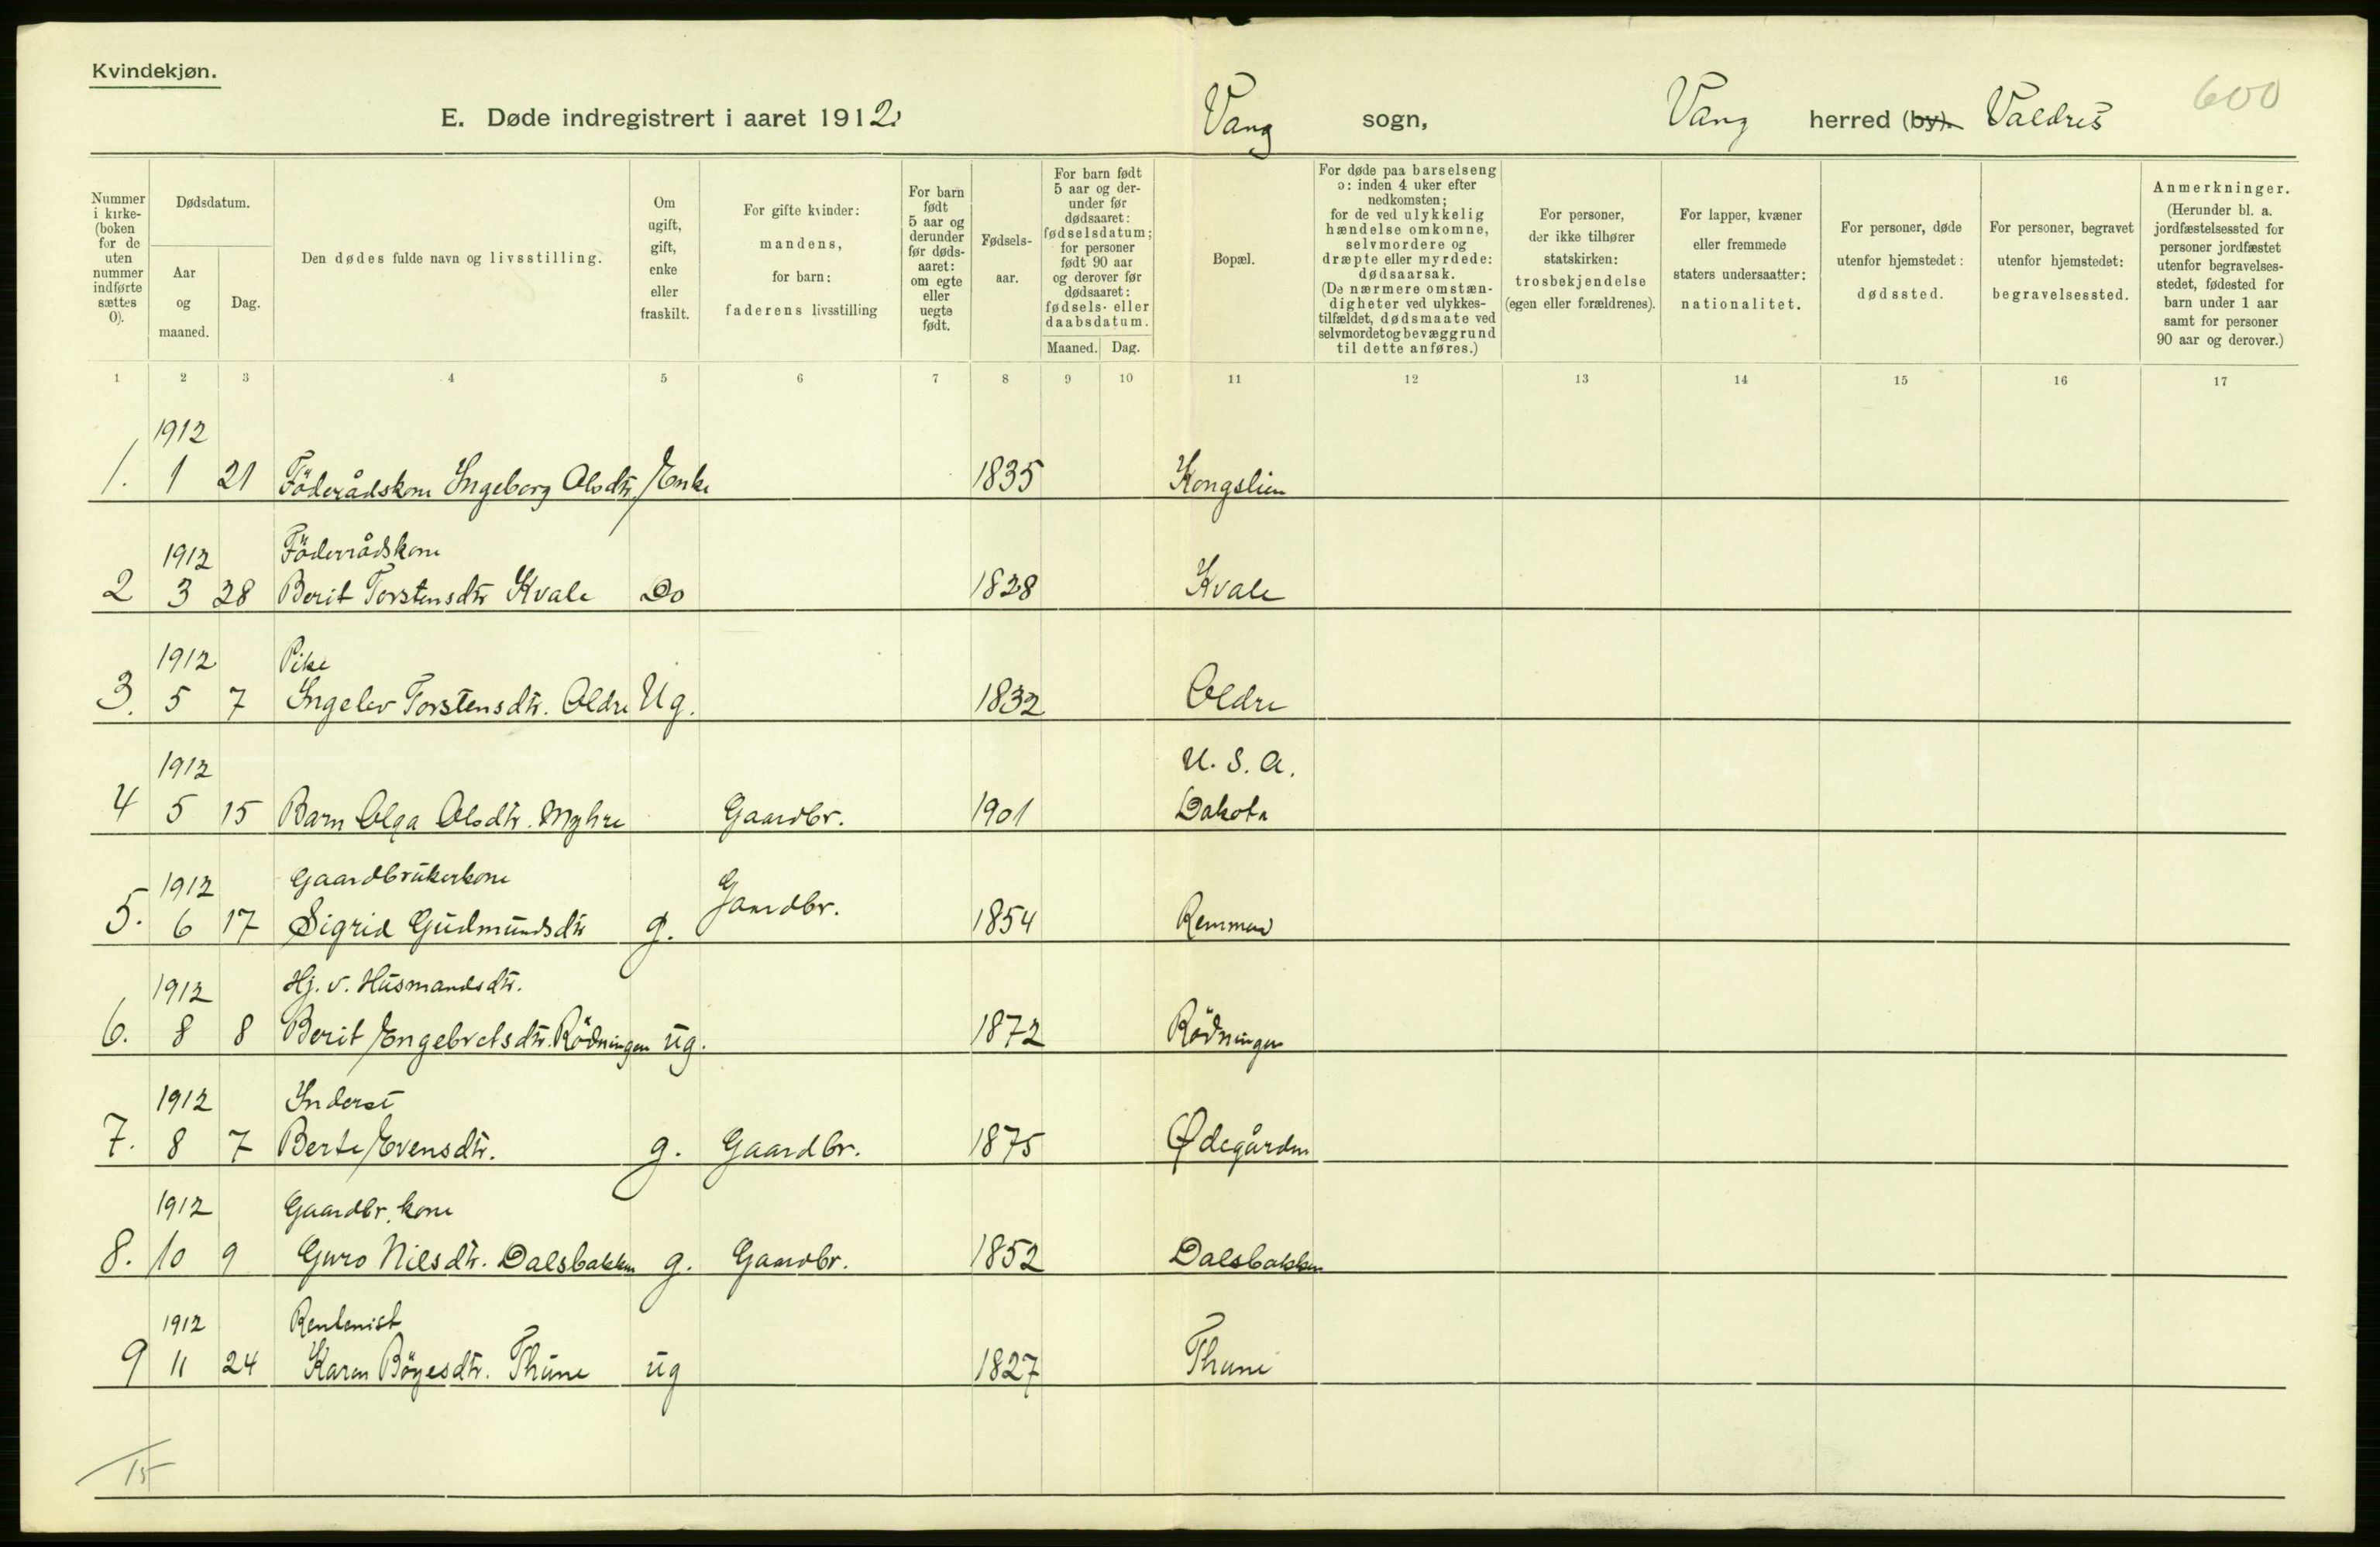 Kvindekjøn.
E. Døde indregistrert i aaret 1912.
Vang sogn, Vang herred (by). Valdres
600
Nummer i kirke- (boken for de uten nummer indførte sættes 0).
Dødsdatum.
Aar og maaned.
Dag.
Den dødes fulde navn og livsstilling.
Om ugift, gift, enke eller fraskilt.
For gifte kvinder: mandens, for barn: faderens livsstilling
For barn født 5 aar og derunder før døds- aaret: om egte eller uegte født.
Fødsels- aar.
For barn født 5 aar og der- under før dødsaaret: fødselsdatum; for personer født 90 aar og derover før dødsaaret: fødsels- eller daabsdatum.
Maaned. Dag.
Bopæl.
For døde paa barselseng ɔ: inden 4 uker efter nedkomsten; for de ved ulykkelig hændelse omkomne, selvmordere og dræpte eller myrdede: dødsaarsak. (De nærmere omstæn- digheter ved ulykkes- tilfældet, dødsmaate ved selvmordet og bevæggrund til dette anføres.)
For personer, der ikke tilhører statskirken: trosbekjendelse (egen eller forældrenes).
For lapper, kvæner eller fremmede staters undersaatter: nationalitet.
For personer, døde utenfor hjemstedet: dødssted.
For personer, begravet utenfor hjemstedet: begravelsessted.
Anmerkninger. (Herunder bl. a. jordfæstelsessted for personer jordfæstet utenfor begravelses- stedet, fødested for barn under 1 aar samt for personer 90 aar og derover.)
1 2 3 4 5 6 7 8 9 10 11 12 13 14 15 16 17
1912
1. 1 21 Föderådskone Ingeborg Olsdtr Enke 1835 Kongslien
1912 Föderrådskone
2 3 28 Berit Torstensdtr Kvale Do 1828 Kvale
1912 Pike
3. 5 7 Ingelev Torstensdtr. Oldre Ug. 1832 Oldre
1912 U. S. A.
4 5 15 Barn Olga Olsdtr. Myhre Gaardbr. 1901 Dakota
1912 Gaardbrukerkone
5. 6 17 Sigrid Gudmundsdtr g. Gaardbr. 1854 Remmen
1912 Hj. v. Husmandsdtr.
6. 8 8 Berit Engebretsdtr. Rödningen ug. 1872 Rödningen
1912 Inderst
7. 8 7 Berte Evensdtr. g. Gaardbr. 1875 Ødegården
1912 Gaardbr. kone
8. 10 9 Guro Nilsdtr. Dalsbakken g. Gaardbr. 1852 Dalsbakken
1912 Rentenist
9 11 24 Karen Böyesdtr. Thune ug 1827 Thune
15